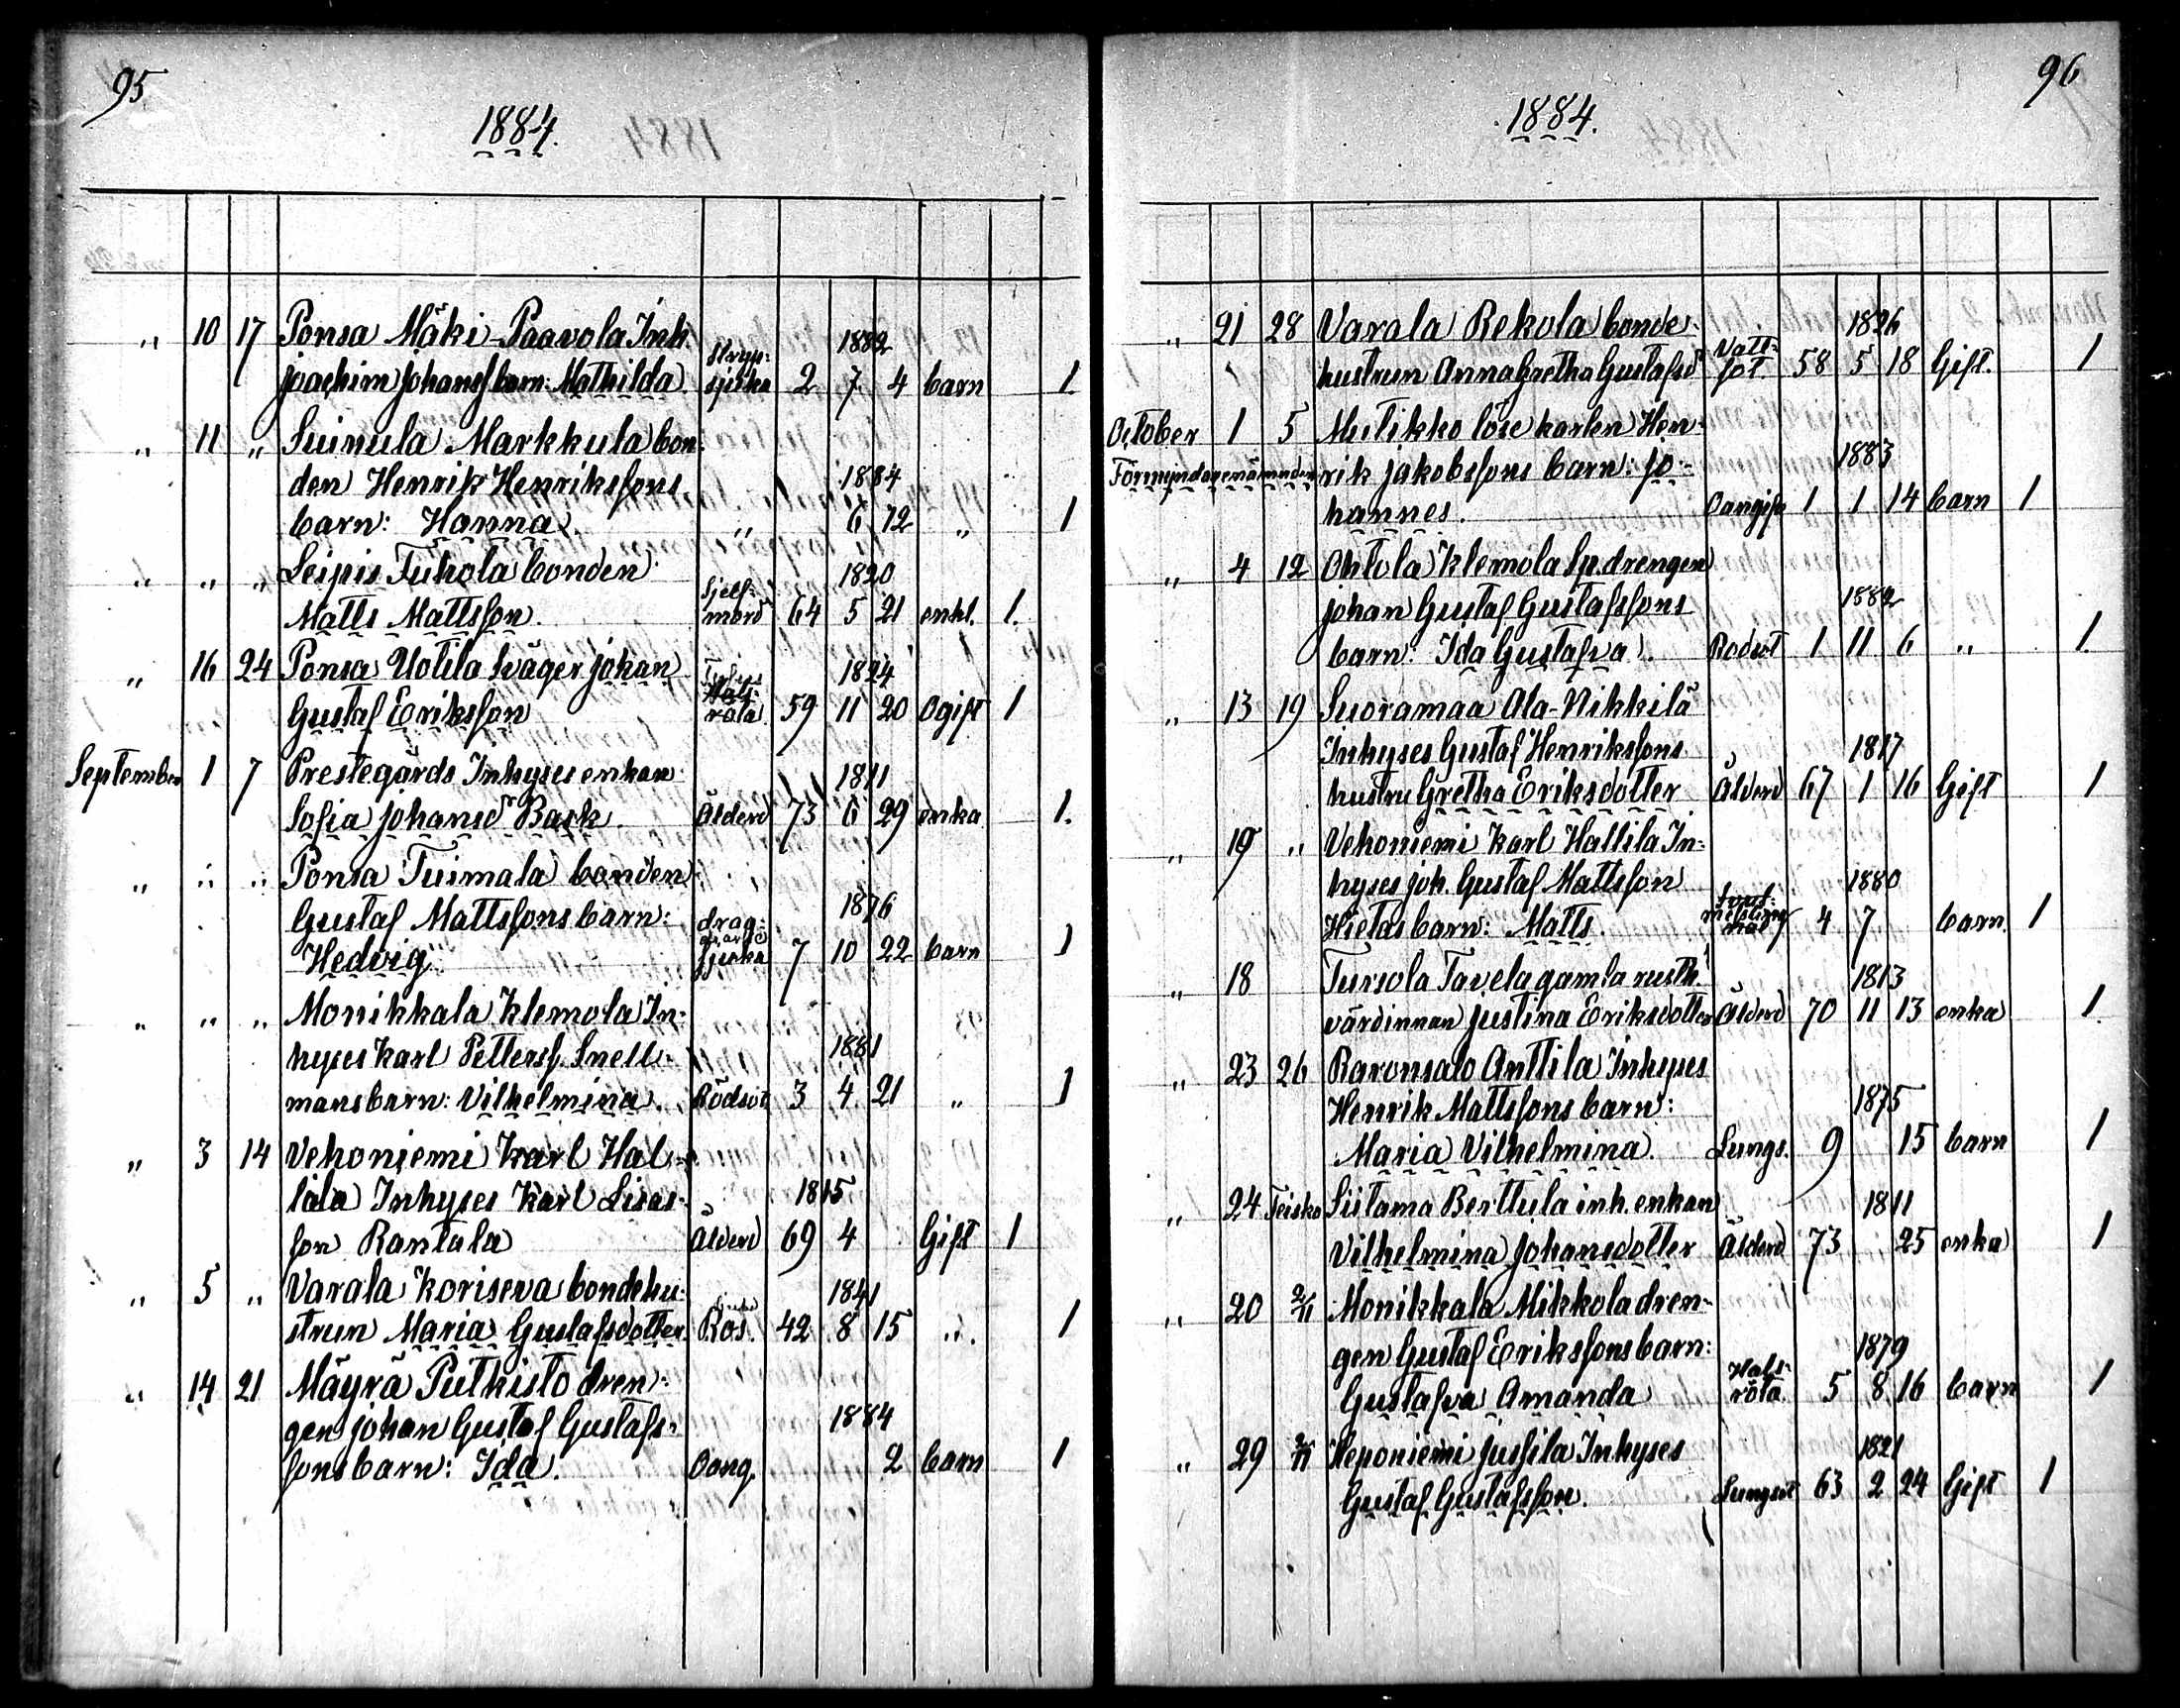 95
1884.
„ 10 17 Ponsa Mäki-Paavola Inh. 1882
Joachim Johanss. barn: Mathilda. Stryp-sjuka 2 7 4 barn 1.
„ 11 „ Suinula Markkula bon-
den Henrik Henrikssons 1884
barn: Hanna. „ 6 12 „ 1
„ „ „ Leipis Tuhola bonden 1820
Matts Mattsson. Sjelf-mord 64 5 21 enkl. 1.
„ 16 24 Ponsa Uotila Swäger Johan 1824
Gustaf Eriksson Hals-röta. 59 11 20 Ogift 1
September 1 7 Prestegårds Inhyses enkan 1811
Sofia Johansd. Bask. Ålderd 73 6 29 enka 1.
„ „ „ Ponsa Tuimala bonden
Gustaf Mattssons barn: 1876
Hedvig drag-sjuka 7 10 22 barn 1
„ „ „ Monikkala Klemola In-
hyses Karl Petterss. Snell- 1881
mans barn: Vilhelmina. Rödsot 3 4 21 „ 1
„ 3 14 Vehoniemi Karl Hal-
lila Inhyses Karl Lisas- 1815
son Rantala Ålderd 69 4 Gift 1
„ 5 „ Varala Koriseva bondehu- 1841
strun Maria Gustafsdotter Ros. 42 8 15 „ 1
„ 14 21 Mäyrä Putkisto dren-
gen Johan Gustaf Gustafs- 1884
sons barn: Ida. Oang. 2 barn 1
96
1884.
„ 21 28 Varala Rekola bonde- 1826
hustrun Anna Gretha Gustafsd. Vatt-sot. 58 5 18 Gift. 1
October 1 5 Mutikko löse karlen Hen-
Förmyndarenämnden rik Jakobssons barn: Jo- 1883
hannes. Oangift 1 1 14 barn 1
„ 4 12 Ohtola Klemola Sp. drengen
Johan Gustaf Gustafssons 1882
barn: Ida Gustafva. Rödsot 1 11 6 „ 1.
„ 13 19 Suoramaa Ala-Nikkilä
Inhyses Gustaf Henrikssons 1817
hustru Gretha Eriksdotter Ålderd 67 1 16 Gift 1
„ 19 „ Vehoniemi Karl Hallila In-
hyses Joh. Gustaf Mattsson 1880
Hietas barn: Matts. 4 7 barn. 1
„ 18 Tursola Tavela gamla rusth. 1813
värdinnan Justina Eriksdotter Ålderd 70 11 13 enka 1.
„ 23 26 Raronsalo Anttila Inhyses
Henrik Mattssons barn: 1875
Maria Vilhelmina. Lungs. 9 15 barn 1
„ 24 Teisko Siitama Berttula inh. enkan 1811
Vilhelmina Johansdotter Ålderd 73 25 enka 1
„ 20 2/11 Monikkala Mikkola dren-
gen Gustaf Erikssons barn: 1879
Gustafva Amanda Hals-röta. 5 8 16 barn 1
„ 29 2/11 Heponiemi Jussila Inhyses 1821
Gustaf Gustafsson. Lungsot 63 2 24 Gift 1